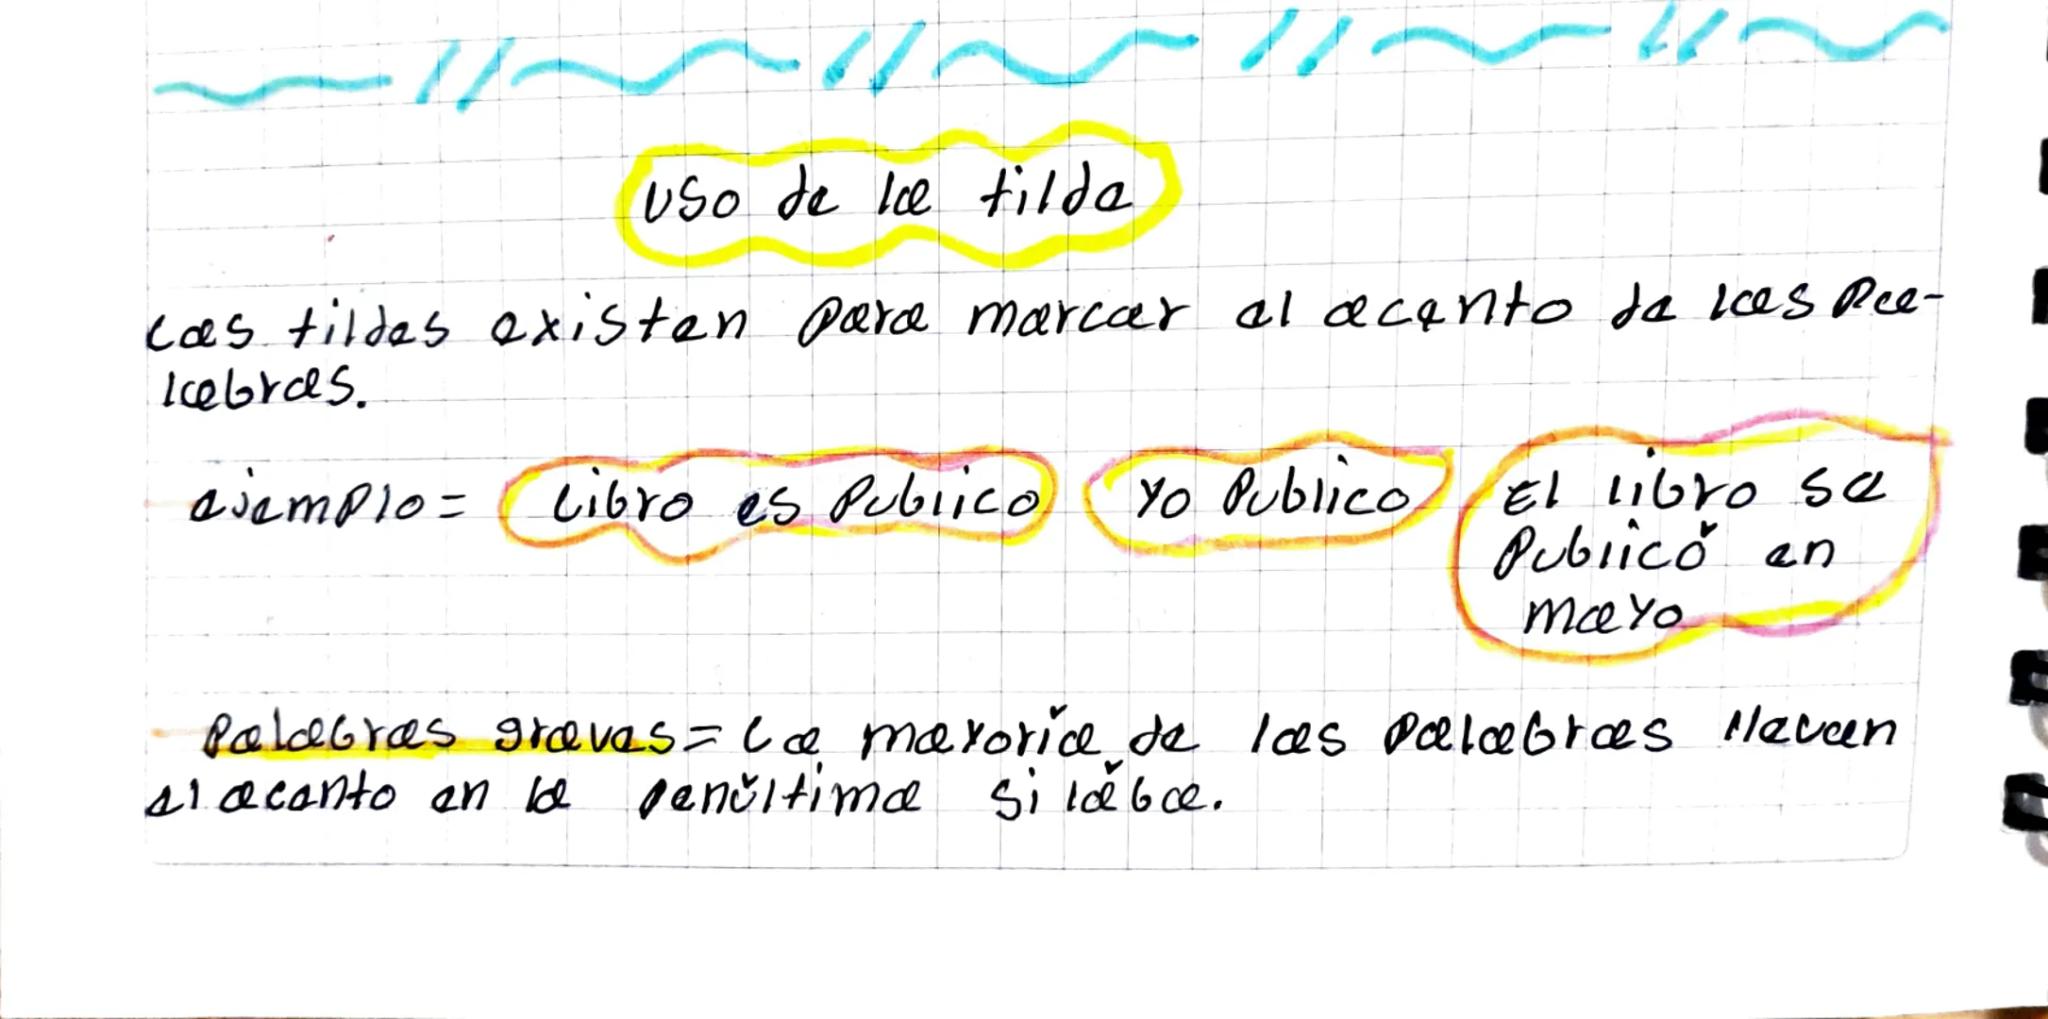 uso de la tilde
Las tildes existen para marcar el acento de las pa-
labras.
ejemplo= Libro es Publico Yo Publico El libro se
Publicó en
mayo
Palabras graves= La mayoría de las palabras llevan
el acento en la penúltima silába.